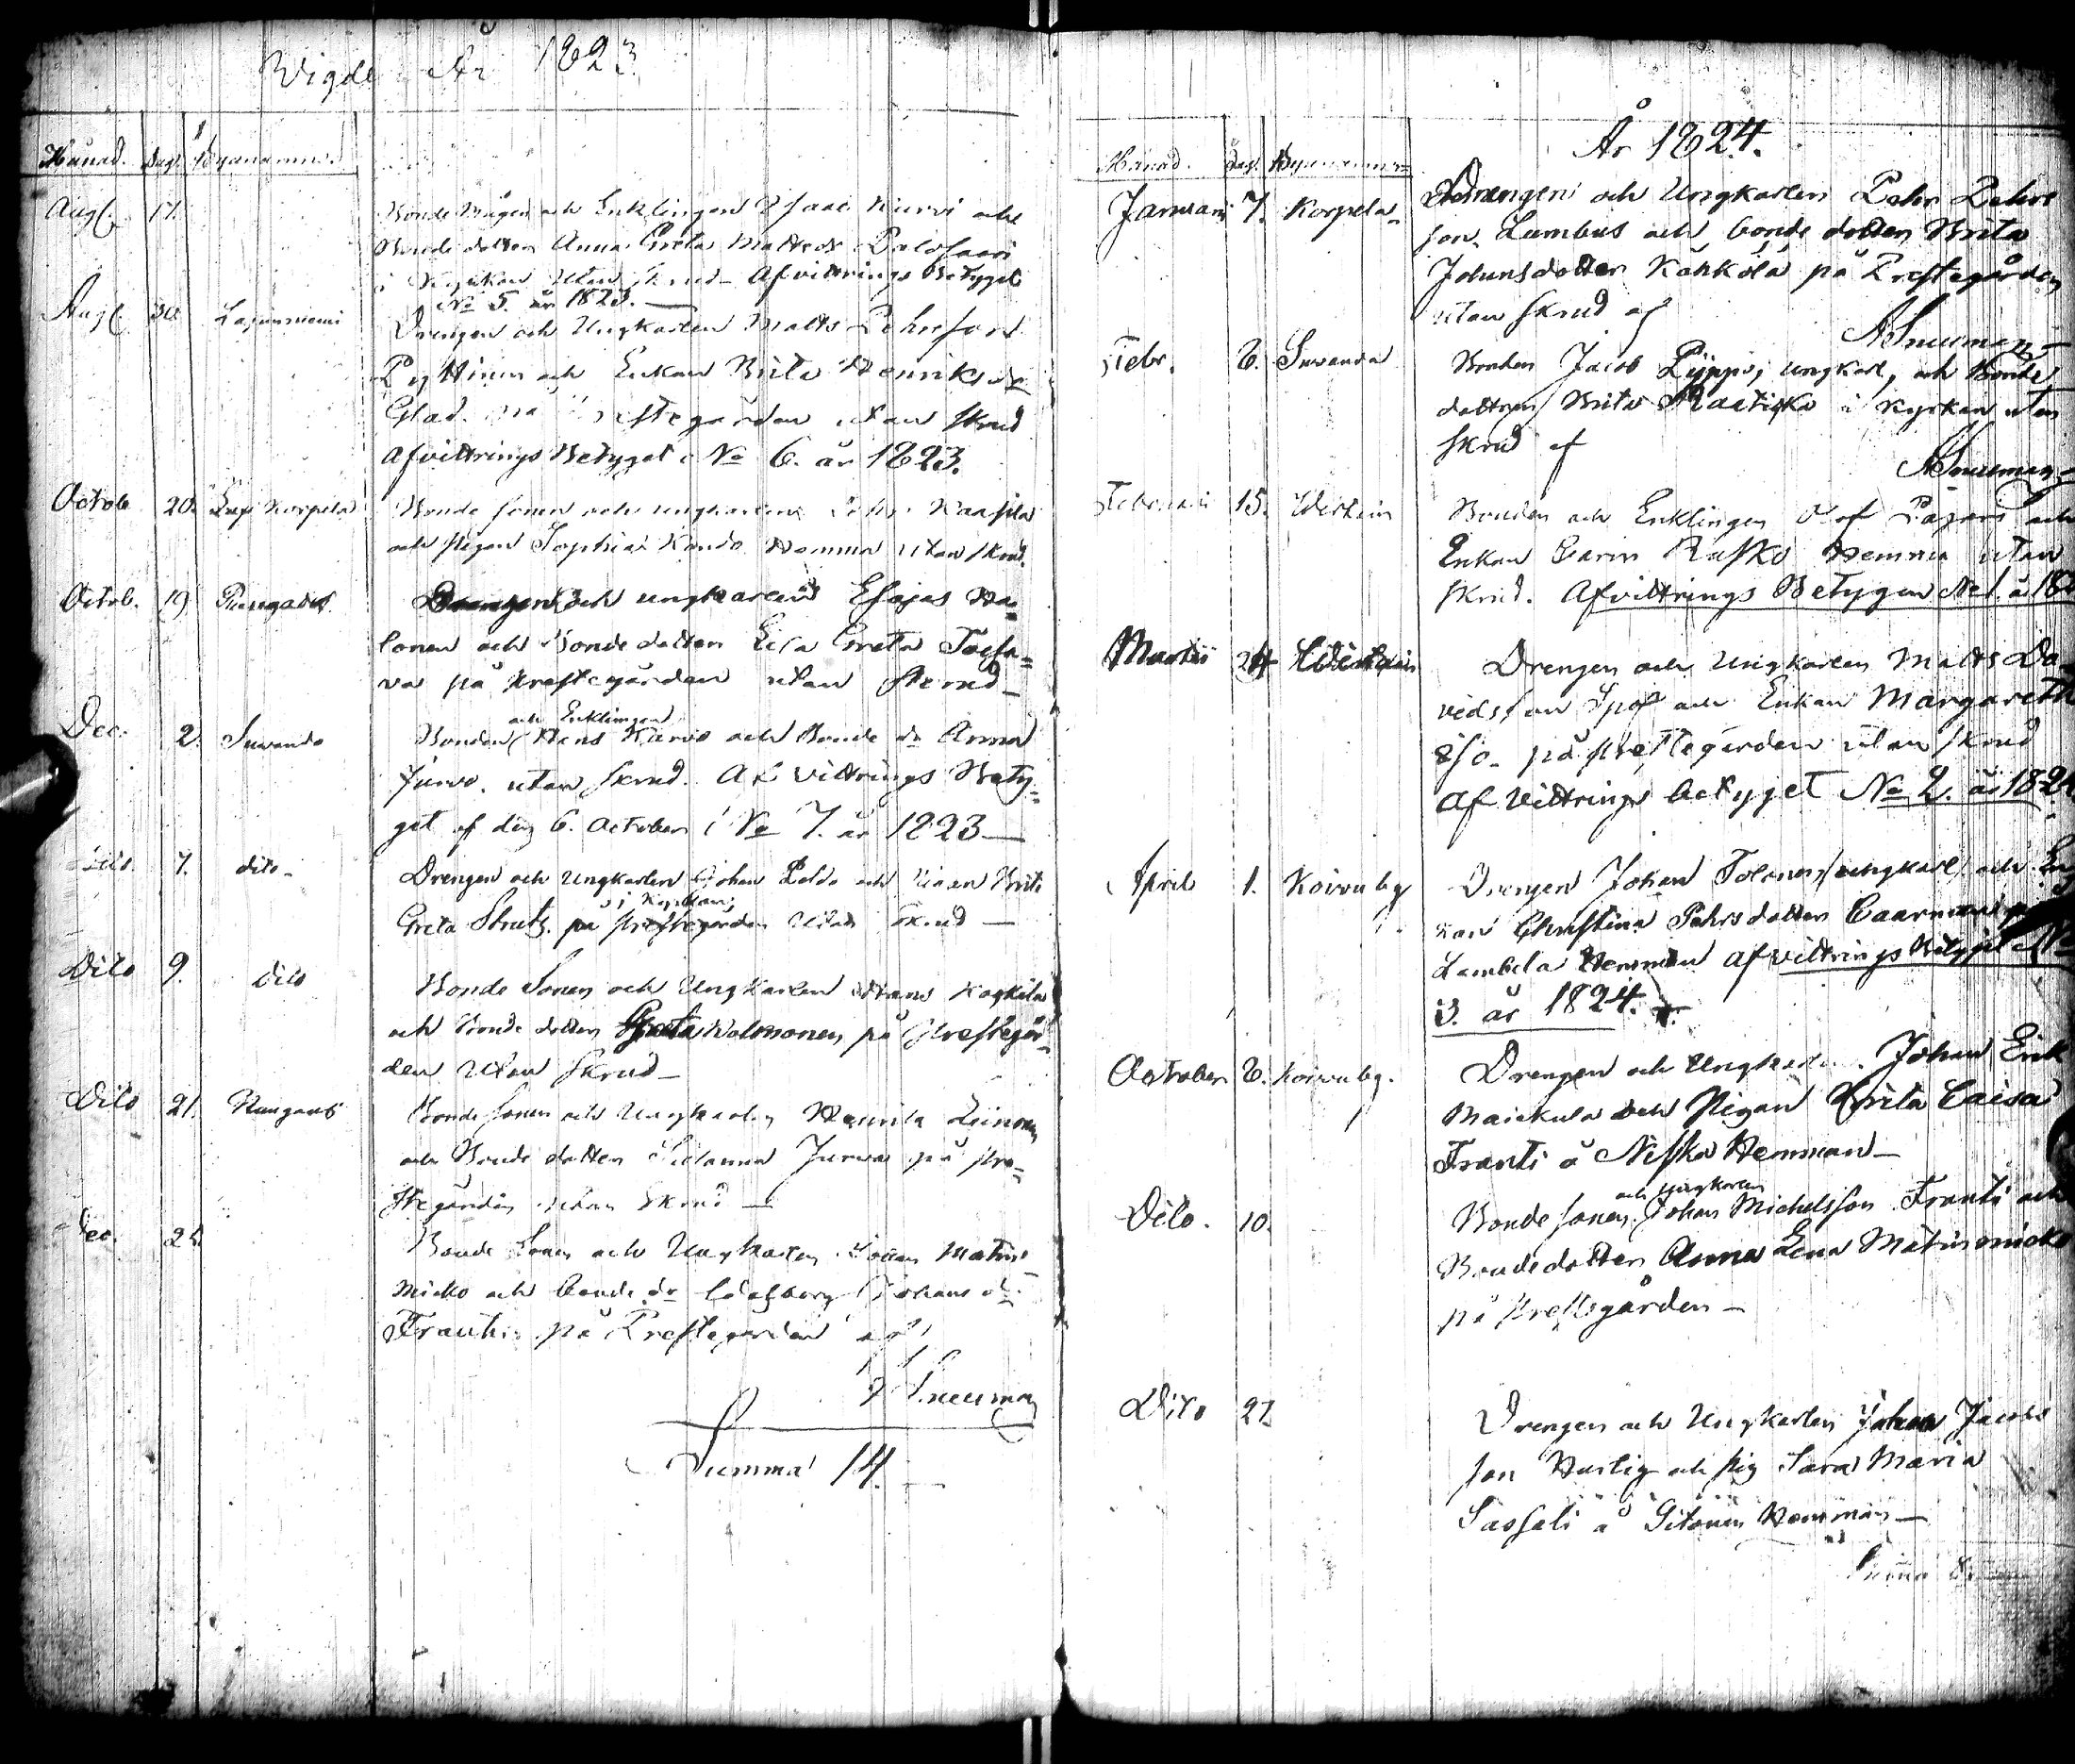 Wigde År 1823
Månad. Dag. Byanamn.
Aug. 17. Bonde Mågen och Enklingen Isaac Niurvi och
Bonde dotter Anna Greta Mattsdr Palosaari
i Kyrkan Utan Skrud Afvittrings Betyget
No 5. år 1823.
Aug. 30. Drengen och Ungkarlen Matts Pehrson
Pyttinen och Enkan Brita Henriksdr
Glad. på Prestegården utan Skrud
Afvittrings Betyget No 6. år 1823.
Octob. 20. Korpela Bonde sonen och ungkarlen
och pigan Sophia Hemman utan skrud.
Octob. 19. Drengen och ungkarlen Esajas Ha=
lonen och Bonde dotter Lisa Greta Toesa=
va på Prestegården utan skrud
Dec. 2. Suvando Bonden och Enklingen Hans Karvo och Bonde dr Anna
Jurvo. utan skrud. Af Vittrings Bety=
get af den 6. October No 7. år 1823
Dito 7. dito Drengen och Ungkarlen Johan Poldo och Pigan Brita
Greta Strutz. på prestegården i Kyrkan, Utan Skrud
Dito 9. Dito Bonde Sonen och Ungkarlen Hans
och Bonde dotter Greta Wolmonen på Prestegår=
den Utan Skrud
Dito 21. Bonde Sonen och Ungkarlen Henrik Leinonen
och Bonde dotter Susanna Jurva på Pre=
stegården utan Skrud
Dec. Bonde Sonen och Ungkarlen Johan Matin=
micko och bonde dr Johans dr
Franti på Prestegården af
Snellman
Summa 14.
År 1824.
Månad. Dag. Byanamn
Januarii 7. Korpela Drengen och Ungkarlen Pehr Pehrs
son Lumbus och bonde dotter Brita
Johansdotter Kähkölä på Prestegården
utan skrud af
A Snellman
Febr. 6. Suvando Bonden Jacob Pyppo, ungkarl, och Bonde
dottren Brita Raatikka i Kyrkan utan
skrud af
A Snellman
Februarii 15. Bonden och Enklingen Olof Pajari och
Enkan Carin Rasko Hemma utan
skrud. Afvittrings Betygen No 1. år 182
Martii 24 Drengen och Ungkarlen Matts Da
vidsson Ipo och Enkan Margareth
Iso på prestegården utan skrud
Af Vittrings betyget No 2. år 1824
April 1. Koivu bg Drengen Johan Tolonen, ungkarl, och En
kan Christina Pehrsdotter Caarman
Lambela Hemman afvittrings Betyget No
3. år 1824.
October 6. Koivu bg. Drengen och Ungkarlen Johan Erik
Maickula och Pigan Brita Caisa
Franti å Niska Hemman
Dito. 10. Bonde sonen och Ungkarlen Johan Michelsson Franti och
Bondedotter Anna Lena Matinmicko
på Prestgården
Dito 27 Drengen och Ungkarlen Johan Jacobs
son Hurtig och pig Sara Maria
Sassali å Hemman
Summa 8.